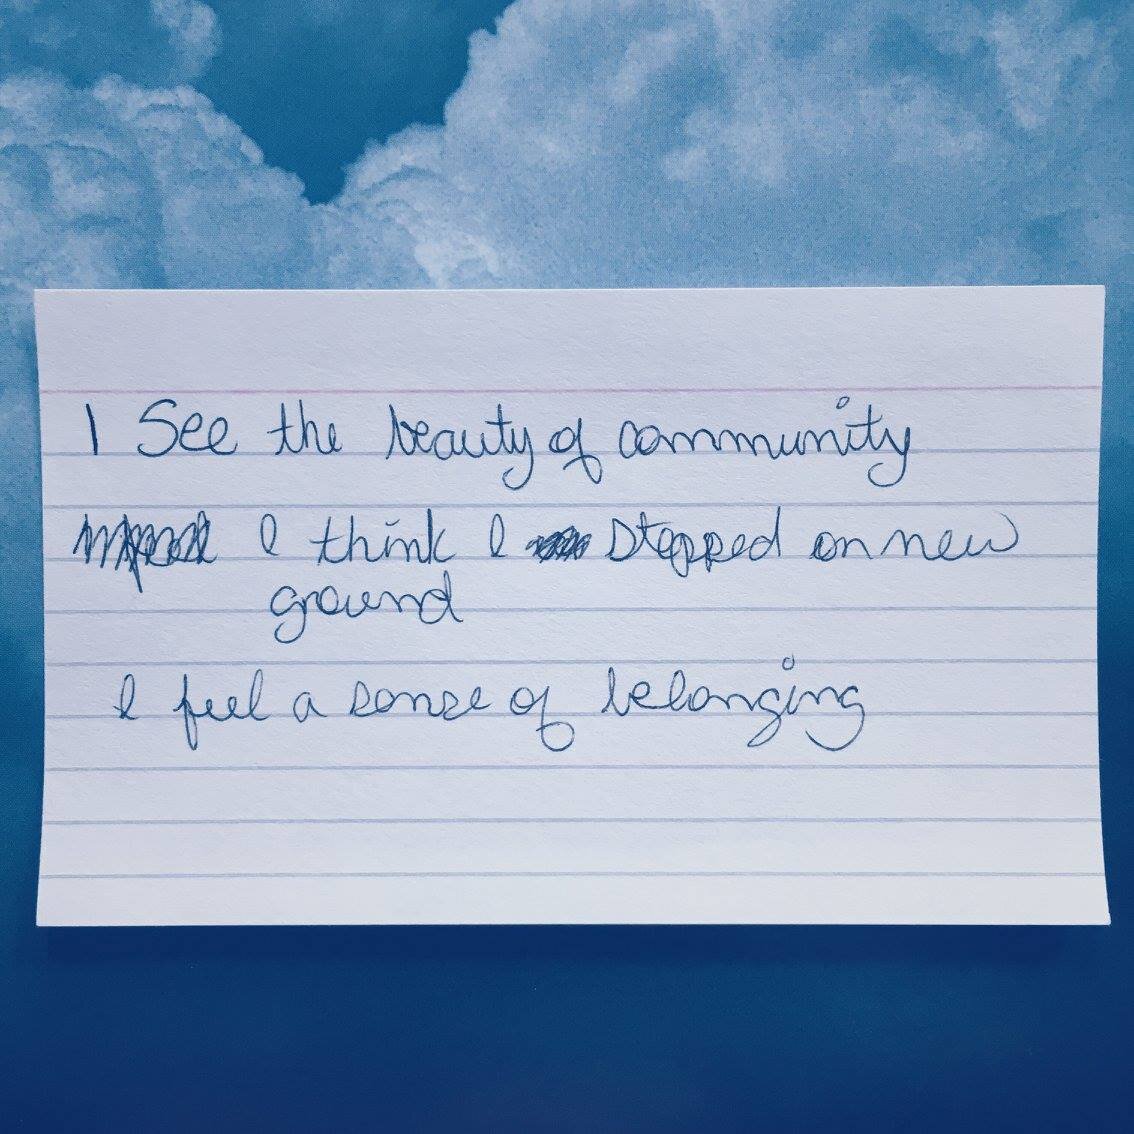 I See the beauty of community
I think I stepped on new
ground
I feel a sense of belonging